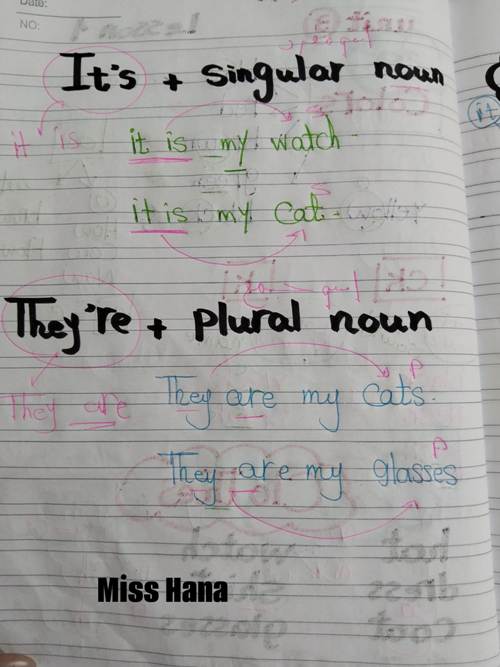 Date:
NO:
It's + singular noun
it is
it is my watch.
S
it is my cat.
They're + plural noun
P
They are
They are my cats.
P
They are my glasses
Miss Hana
it